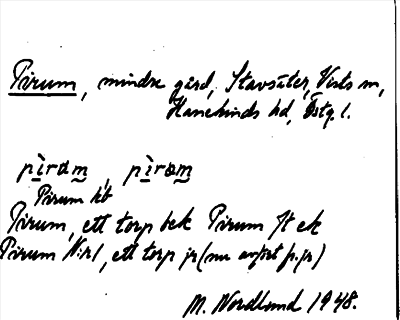 Pirum, mindre gård, Stavsäter, Vists sn,
Hanekinds hd, Östg. l.
pìrum, pìrəm
Pirum kb
Pirum, ett torp bek Pirum Jt ek
Pirum N:r1, ett torp jr (nu anfört p. jr)
M. Nordlund 1948.